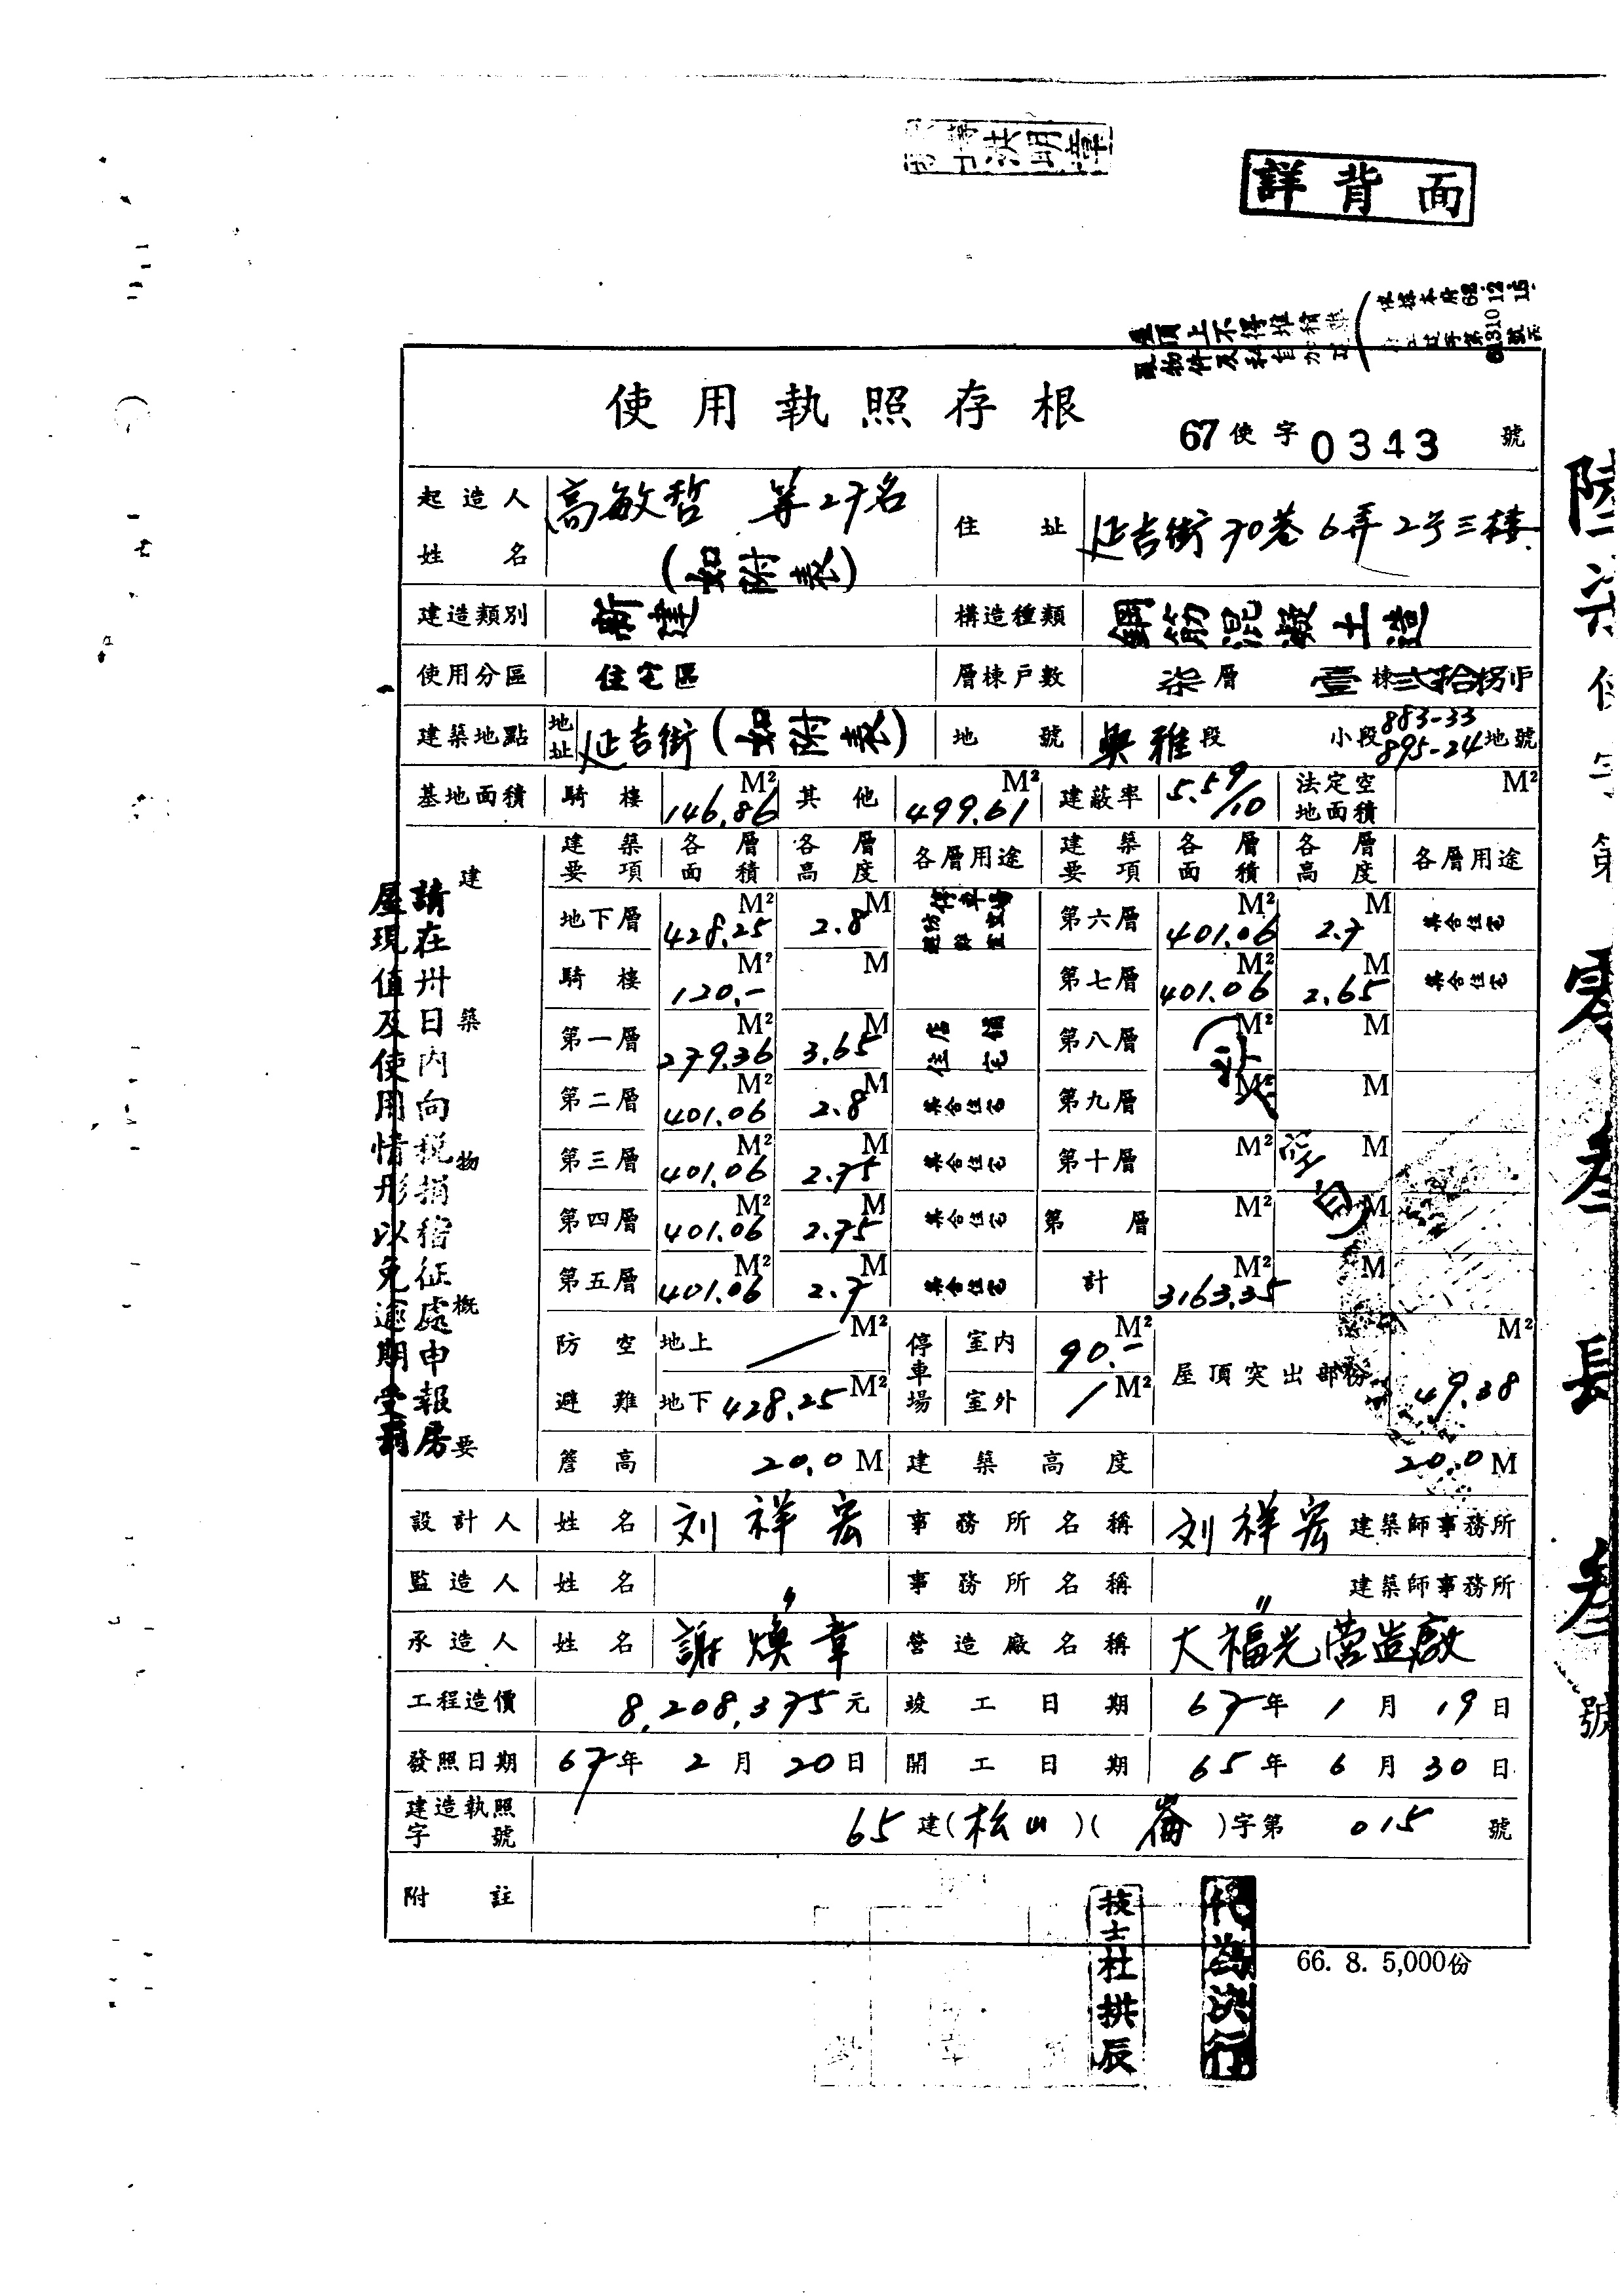 詳背面
屋頂上不得堆積
使用執照存根
67使字0343號
起造人姓名 高敏哲 等27名(如附表) 住址 延吉街70巷6弄2号三楼
建造類別 新建 構造種類 鋼筋混凝土造
使用分區 住宅區 層棟戶數 柒層 壹棟弍拾捌戶
建築地點 地址 延吉街(如附表) 地號 興雅段 小段 883-33 895-24 地號
基地面積 騎樓 146.86 M² 其他 499.61 M² 建蔽率 5.59/10 法定空地面積 M²
建築物概要
建築要項 各層面積 各層高度 各層用途 建築要項 各層面積 各層高度 各層用途
地下層 428.25 M² 2.8 M 第六層 401.06 M² 2.7 M 集合住宅
騎樓 120.- M² M 第七層 401.06 M² 2.65 M 集合住宅
第一層 279.36 M² 3.65 M 店舖住宅 第八層 M² M
第二層 401.06 M² 2.8 M 集合住宅 第九層 M² M
第三層 401.06 M² 2.75 M 集合住宅 第十層 M² M
第四層 401.06 M² 2.75 M 集合住宅 第 層 M² M
第五層 401.06 M² 2.7 M 集合住宅 計 3163.35 M² M
(以下空白)
防空避難 地上 / M² 停車場 室內 90.- M² 屋頂突出部份 49.38 M²
地下 428.25 M² 室外 / M²
簷高 20.0 M 建築高度 20.0 M
設計人 姓名 刘祥宏 事務所名稱 刘祥宏 建築師事務所
監造人 姓名 〃 事務所名稱 〃 建築師事務所
承造人 姓名 謝煥章 營造廠名稱 大福光营造廠
工程造價 8,208,375元 竣工日期 67年1月19日
發照日期 67年2月20日 開工日期 65年6月30日
建造執照字號 65建(松山)(崙)字第015號
附註
請在卅日內向稅捐稽征處申報房
屋現值及使用情形以免逾期受罰
技士杜拱辰
代為決行
66. 8. 5,000份
陸柒使字第零叁肆叁號